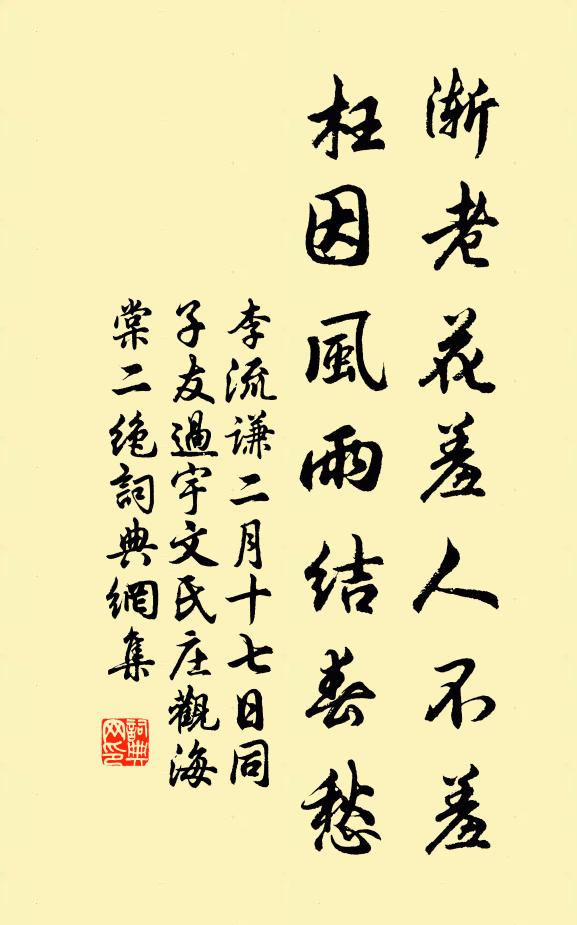 漸老花羞人不羞
枉因風雨結春愁
李流謙二月十七日同
子友過宇文氏庄觀海
棠二絕詞典網集
詞典網印